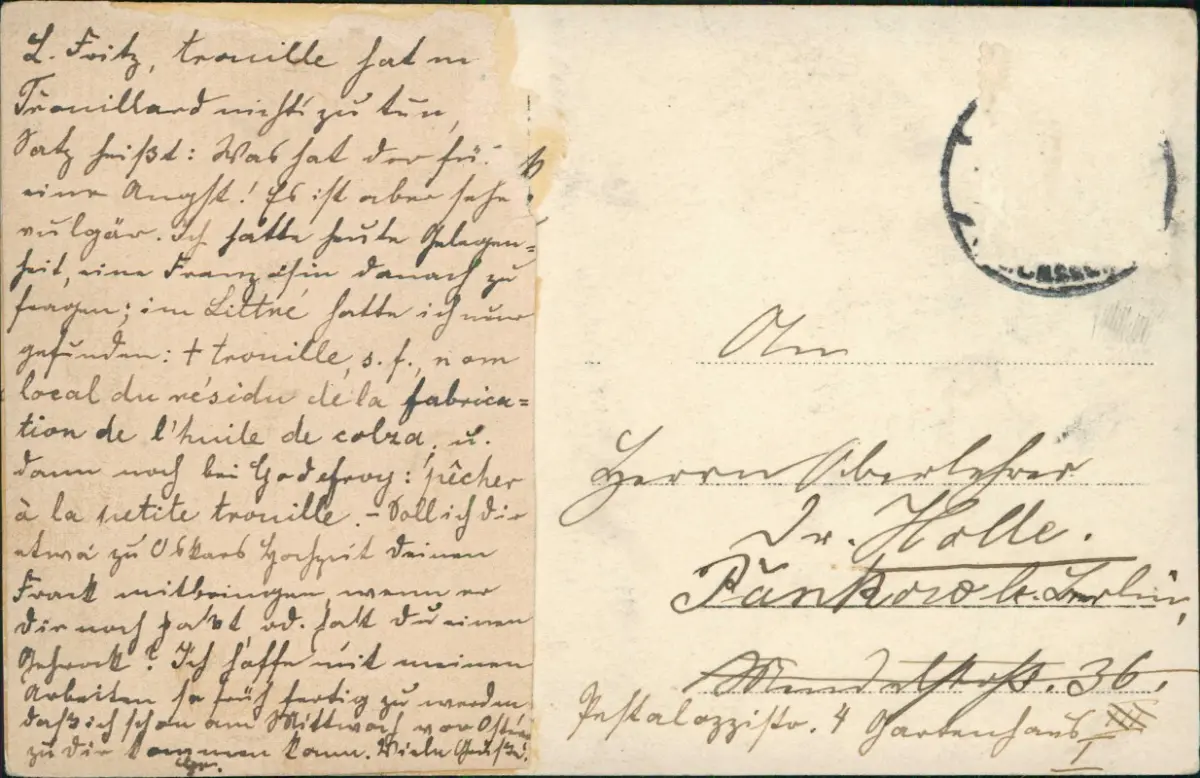 L. Fritz, trouille hat m
Trouillard nichts zu tun,
Satz heißt: Was hat der für
eine Angst! Es ist aber sehr
vulgär. Ich hatte heute Gelegen=
heit, eine Französin danach zu
fragen; im Littré hatte ich nur
gefunden: + trouille, s. f., nom
local du résidu de la fabrica=
tion de l'huile de colza, u.
dann noch bei Godefroy: pêcher
à la petite trouille. – Soll ich dir
etwa zu Oskars Hochzeit deinen
Frack mitbringen, wenn er
dir noch paßt, od. hast du einen
Gehrock? Ich hoffe mit meinen
Arbeiten so früh fertig zu werden,
daß ich schon am Mittwoch vor Ostern
zu dir kommen kann. Viele Grüße!
An
Herrn Oberlehrer
Dr. Holle.
Pankow b. Berlin,
36.
Pestalozzistr. 4 Gartenhaus I